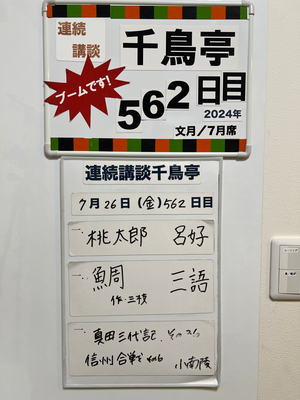 連続
講談
千鳥亭
ブームです!
562日目
2024年
文月/7月席
連続講談千鳥亭
7月26日(金)562日目
一、桃太郎 呂好
一、鯛周 三語
一、真田三代記、その
信州合戦 その6 小南陵